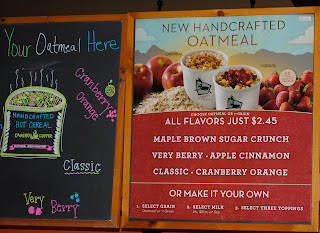 Your Oatmeal Here
Cranberry
Orange
HANDCRAFTED
HOT CEREAL
CARIBOU COFFEE
Classic
Very
Berry
NEW HANDCRAFTED
OATMEAL
OATMEAL
ALL FLAVORS JUST $2.45
MAPLE BROWN SUGAR CRUNCH
VERY BERRY • APPLE CINNAMON
CLASSIC • CRANBERRY ORANGE
OR MAKE IT YOUR OWN
1. SELECT GRAIN
2. SELECT MILK
3. SELECT THREE TOPPINGS